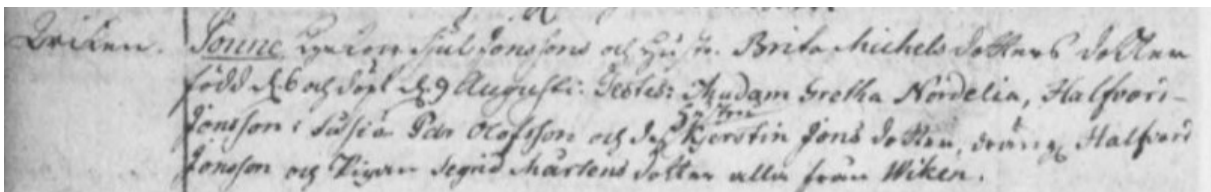 Wiken. Jonne, Jul Jonssons och Hustr. Brita Michels dotters dotter
född d. 6 och döpt d. 9 Augusti. Testes: Madam Gretha Nordelia, Halfvard
Hustru
Jonsson i Pär Olofsson och des Kjerstin Jons dotter, dräng Halfvard
Jonsson och Pigan Segrid Mårtens dotter alla från Wiken.